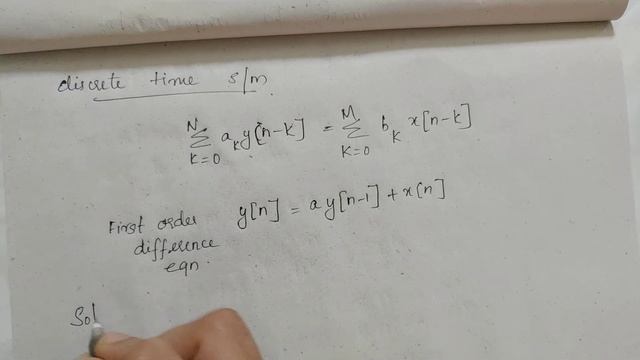 discrete time s/m
N M
∑ a_k y[n-k] = ∑ b_k x[n-k]
k=0 k=0
First order y[n] = a y[n-1] + x[n]
difference
eqn.
Sol